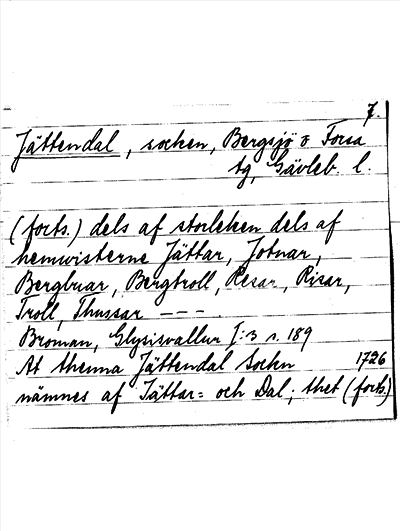 7.
Jättendal, socken, Bergsjö o Forsa
tg, Gävleb. l.
(forts.) dels af storleken dels af
hemwisterne Jättar, Jotnar,
Bergbuar, Bergtroll, Resar, Risar,
Troll, Thussar – – – .
Broman, Glysisvallur I:3 s. 189
At thenna Jättendal Sockn 1726
nämnes af Jättar= och Dal; thet (forts.)